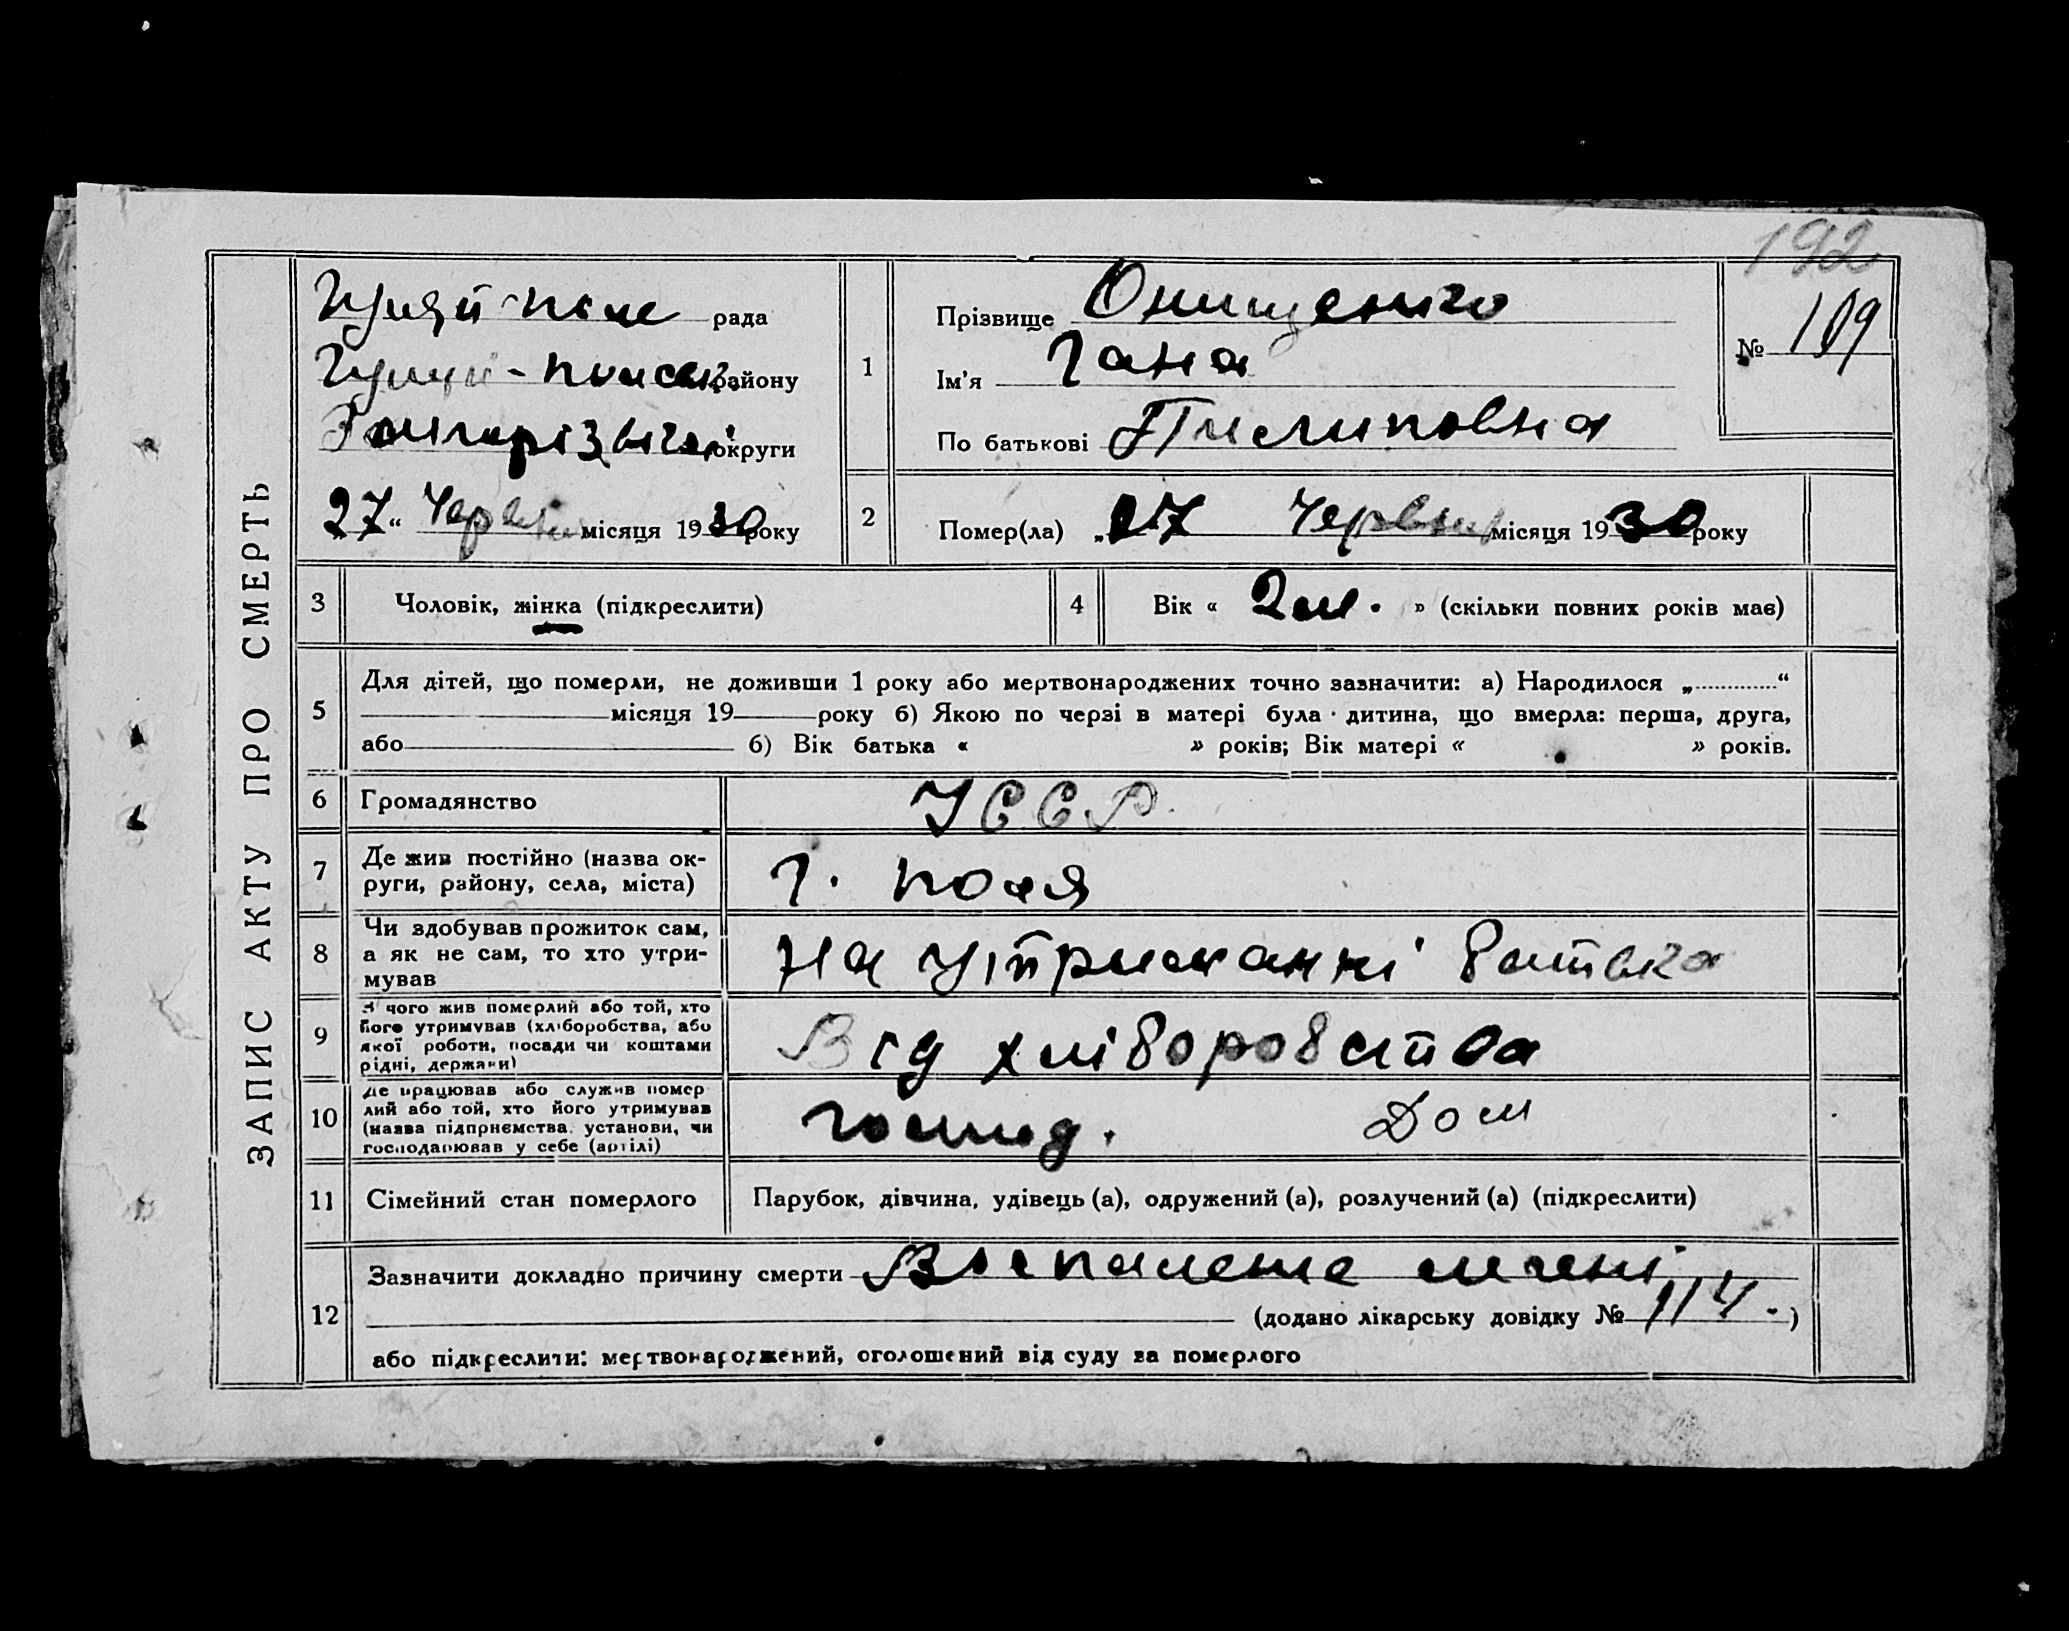 192
ЗАПИС АКТУ ПРО СМЕРТЬ
Гуляй-поле рада
Гуляй-польск. району
Запорізької округи
27 “ Червня місяця 1930 року
1
Прізвище Онищенко
Ім'я Гана
По батькові Пилиповна
№ 109
2
Помер(ла) „27 Червня місяця 1930 року
3 Чоловік, жінка (підкреслити)
4 Вік « 2 м. » (скільки повних років має)
5
Для дітей, що померли, не доживши 1 року або мертвонароджених точно зазначити: а) Народилося „ “
місяця 19 року б) Якою по черзі в матері була дитина, що вмерла: перша, друга,
або б) Вік батька « » років; Вік матері « » років.
6 Громадянство УССР.
7 Де жив постійно (назва ок-
руги, району, села, міста) Г. поля
8 Чи здобував прожиток сам,
а як не сам, то хто утри-
мував на утриманні батька
9 З чого жив померлий або той, хто
його утримував (хліборобства, або
якої роботи, посади чи коштами
рідні, держави) Від хліборобства
10 Де працював або служив помер
лий або той, хто його утримував
(назва підприємства, установи, чи
господарював у себе (артілі) господ. Дом
11 Сімейний стан померлого Парубок, дівчина, удівець (а), одружений (а), розлучений (а) (підкреслити)
12
Зазначити докладно причину смерти Воспаление легені
(додано лікарську довідку № 114. )
або підкреслити: мертвонароджений, оголошений від суду за померлого